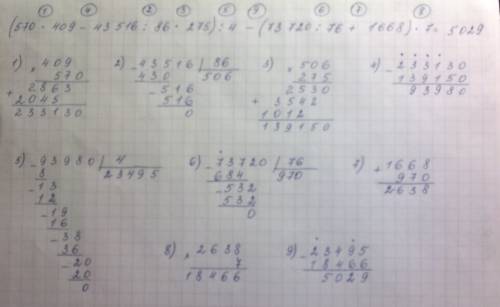 ① ④ ② ③ ⑤ ⑨ ⑥ ⑦ ⑧
(570 · 409 - 43516 : 86 · 275) : 4 - (73720 : 76 + 1668) · 7 = 5029
1) × 409 2) - 43516 | 86 3) × 506 4) - 233130
570 430 506 275 139150
+ 2863 - 516 2530 93980
2045 516 + 3542
233130 0 1012
139150
5) - 93980 | 4 6) - 73720 | 76 7) + 1668
8 23495 684 970 970
- 13 - 532 2638
12 532
- 19 0
16
- 38
36 8) × 2638 9) - 23495
- 20 7 18466
20 18466 5029
0